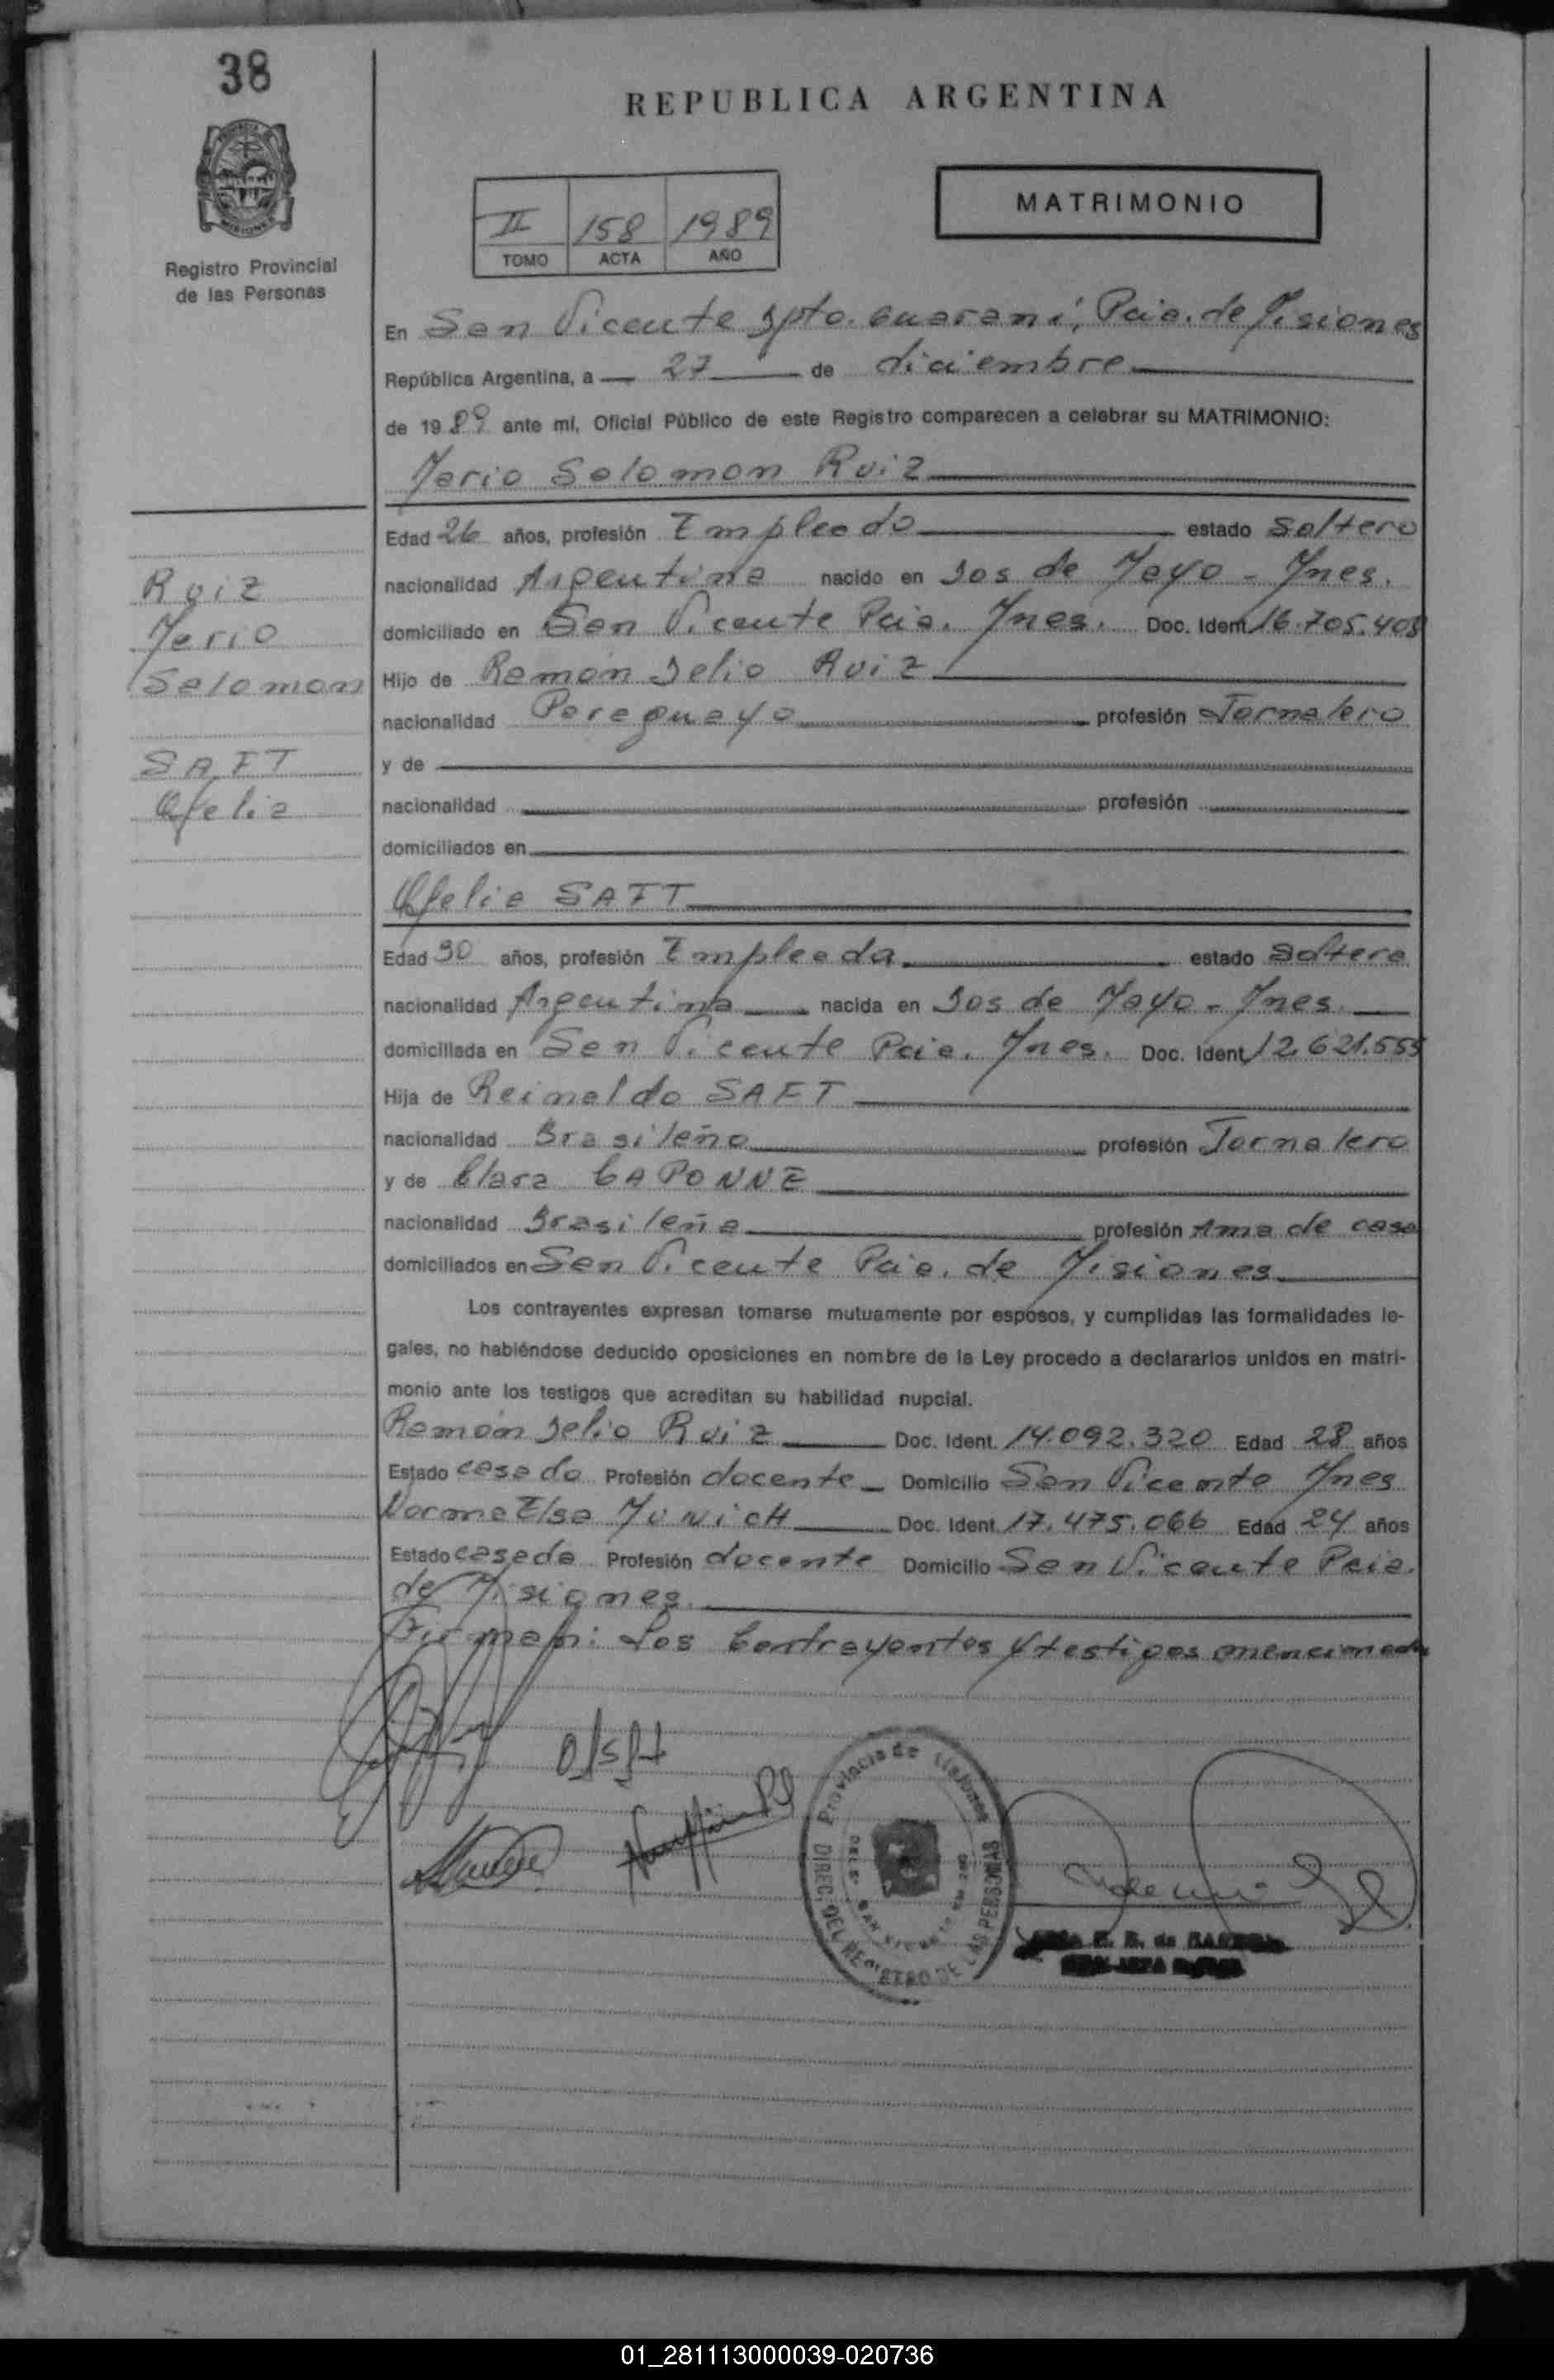 38
REPUBLICA ARGENTINA
MATRIMONIO
II 158 1989
TOMO ACTA AÑO
Registro Provincial
de las Personas
En San Vicente Dpto. Guaraní, Pcia. de Misiones
República Argentina, a 27 de diciembre
de 1989 ante mí, Oficial Público de este Registro comparecen a celebrar su MATRIMONIO:
Mario Salomon Ruiz
Edad 26 años, profesión Empleado estado Soltero
nacionalidad Argentina nacido en Dos de Mayo - Mnes.
domiciliado en San Vicente Pcia. Mnes. Doc. Ident. 16.705.408
Hijo de Ramón Delio Ruiz
nacionalidad Paraguayo profesión Jornalero
y de
nacionalidad profesión
domiciliados en
Ruiz
Mario
Salomon
SAFT
Ofelia
Ofelia SAFT
Edad 30 años, profesión Empleada estado Soltera
nacionalidad Argentina nacida en Dos de Mayo - Mnes.
domiciliada en San Vicente Pcia. Mnes. Doc. Ident. 12.621.555
Hija de Reinaldo SAFT
nacionalidad Brasileño profesión Jornalero
y de Clara CAPONNE
nacionalidad Brasileña profesión Ama de casa
domiciliados en San Vicente Pcia. de Misiones
Los contrayentes expresan tomarse mutuamente por esposos, y cumplidas las formalidades le-
gales, no habiéndose deducido oposiciones en nombre de la Ley procedo a declararlos unidos en matri-
monio ante los testigos que acreditan su habilidad nupcial.
Ramón Delio Ruiz Doc. Ident. 14.092.320 Edad 28 años
Estado casado Profesión docente Domicilio San Vicente Mnes
Norma Elsa MUNICH Doc. Ident. 17.475.066 Edad 24 años
Estado casada Profesión docente Domicilio San Vicente Pcia.
de Misiones.
Firman: Los Contrayentes y testigos mencionados
Provincia de Misiones
DIREC. DEL REGISTRO DE LAS PERSONAS
01_281113000039-020736